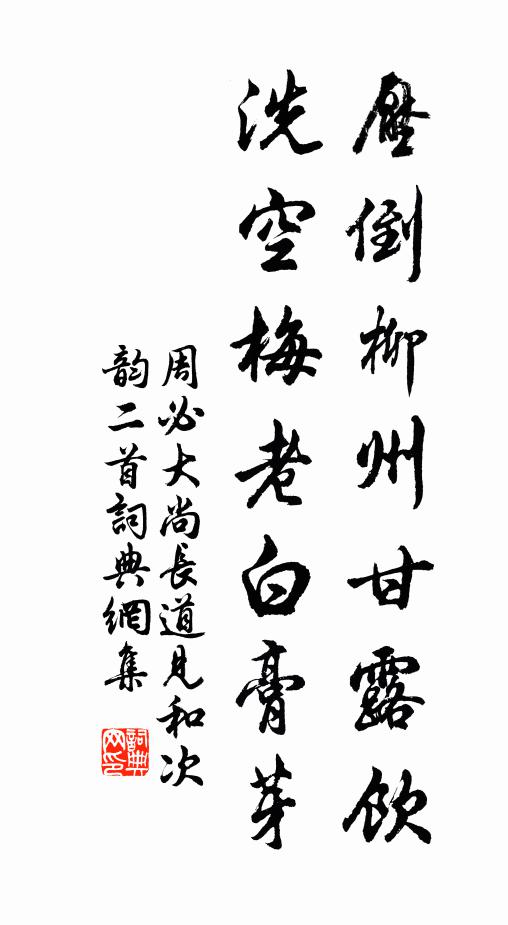 壓倒柳州甘露飲
洗空梅老白膏芽
周必大尚長道見和次
韵二首詞典網集
詞典
网印